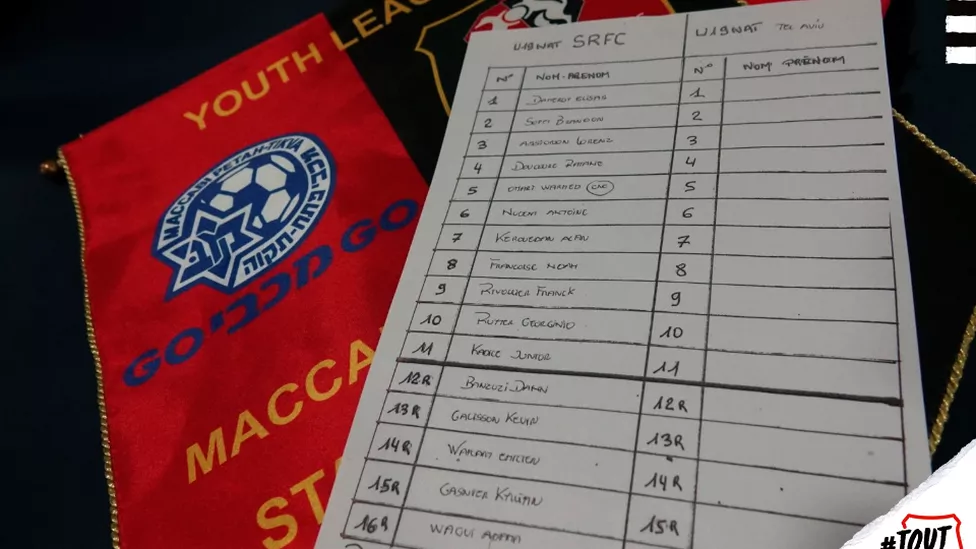 YOUTH LEAG
MACCABI PETAH-TIKVA
מכבי פתח-תקוה
GO מכבי GO
MACCA
ST
U19NAT SRFC
U19NAT TEL AVIV
N° NOM-PRENOM N° NOM PRÉNOM
1 1
2 SOPPI BRANDON 2
3 ASSIGNON LORENZ 3
4 DOUCOURE 4
5 OMARI WARMED CAP 5
6 NUCENI ANTOINE 6
7 KEROUEDAN ALAN 7
8 FRANCOISE NOAH 8
9 RIVOLLIER FRANCK 9
10 RUTTER GEORGINIO 10
11 KADILE JUNIOR 11
12R BANCUZI DANN 12R
13R GALISSON KEVIN 13R
14R EMILIEN 14R
15R GASNIER KYLLIAN 15R
16R WAGUI ADAMA 15R
#TOUT